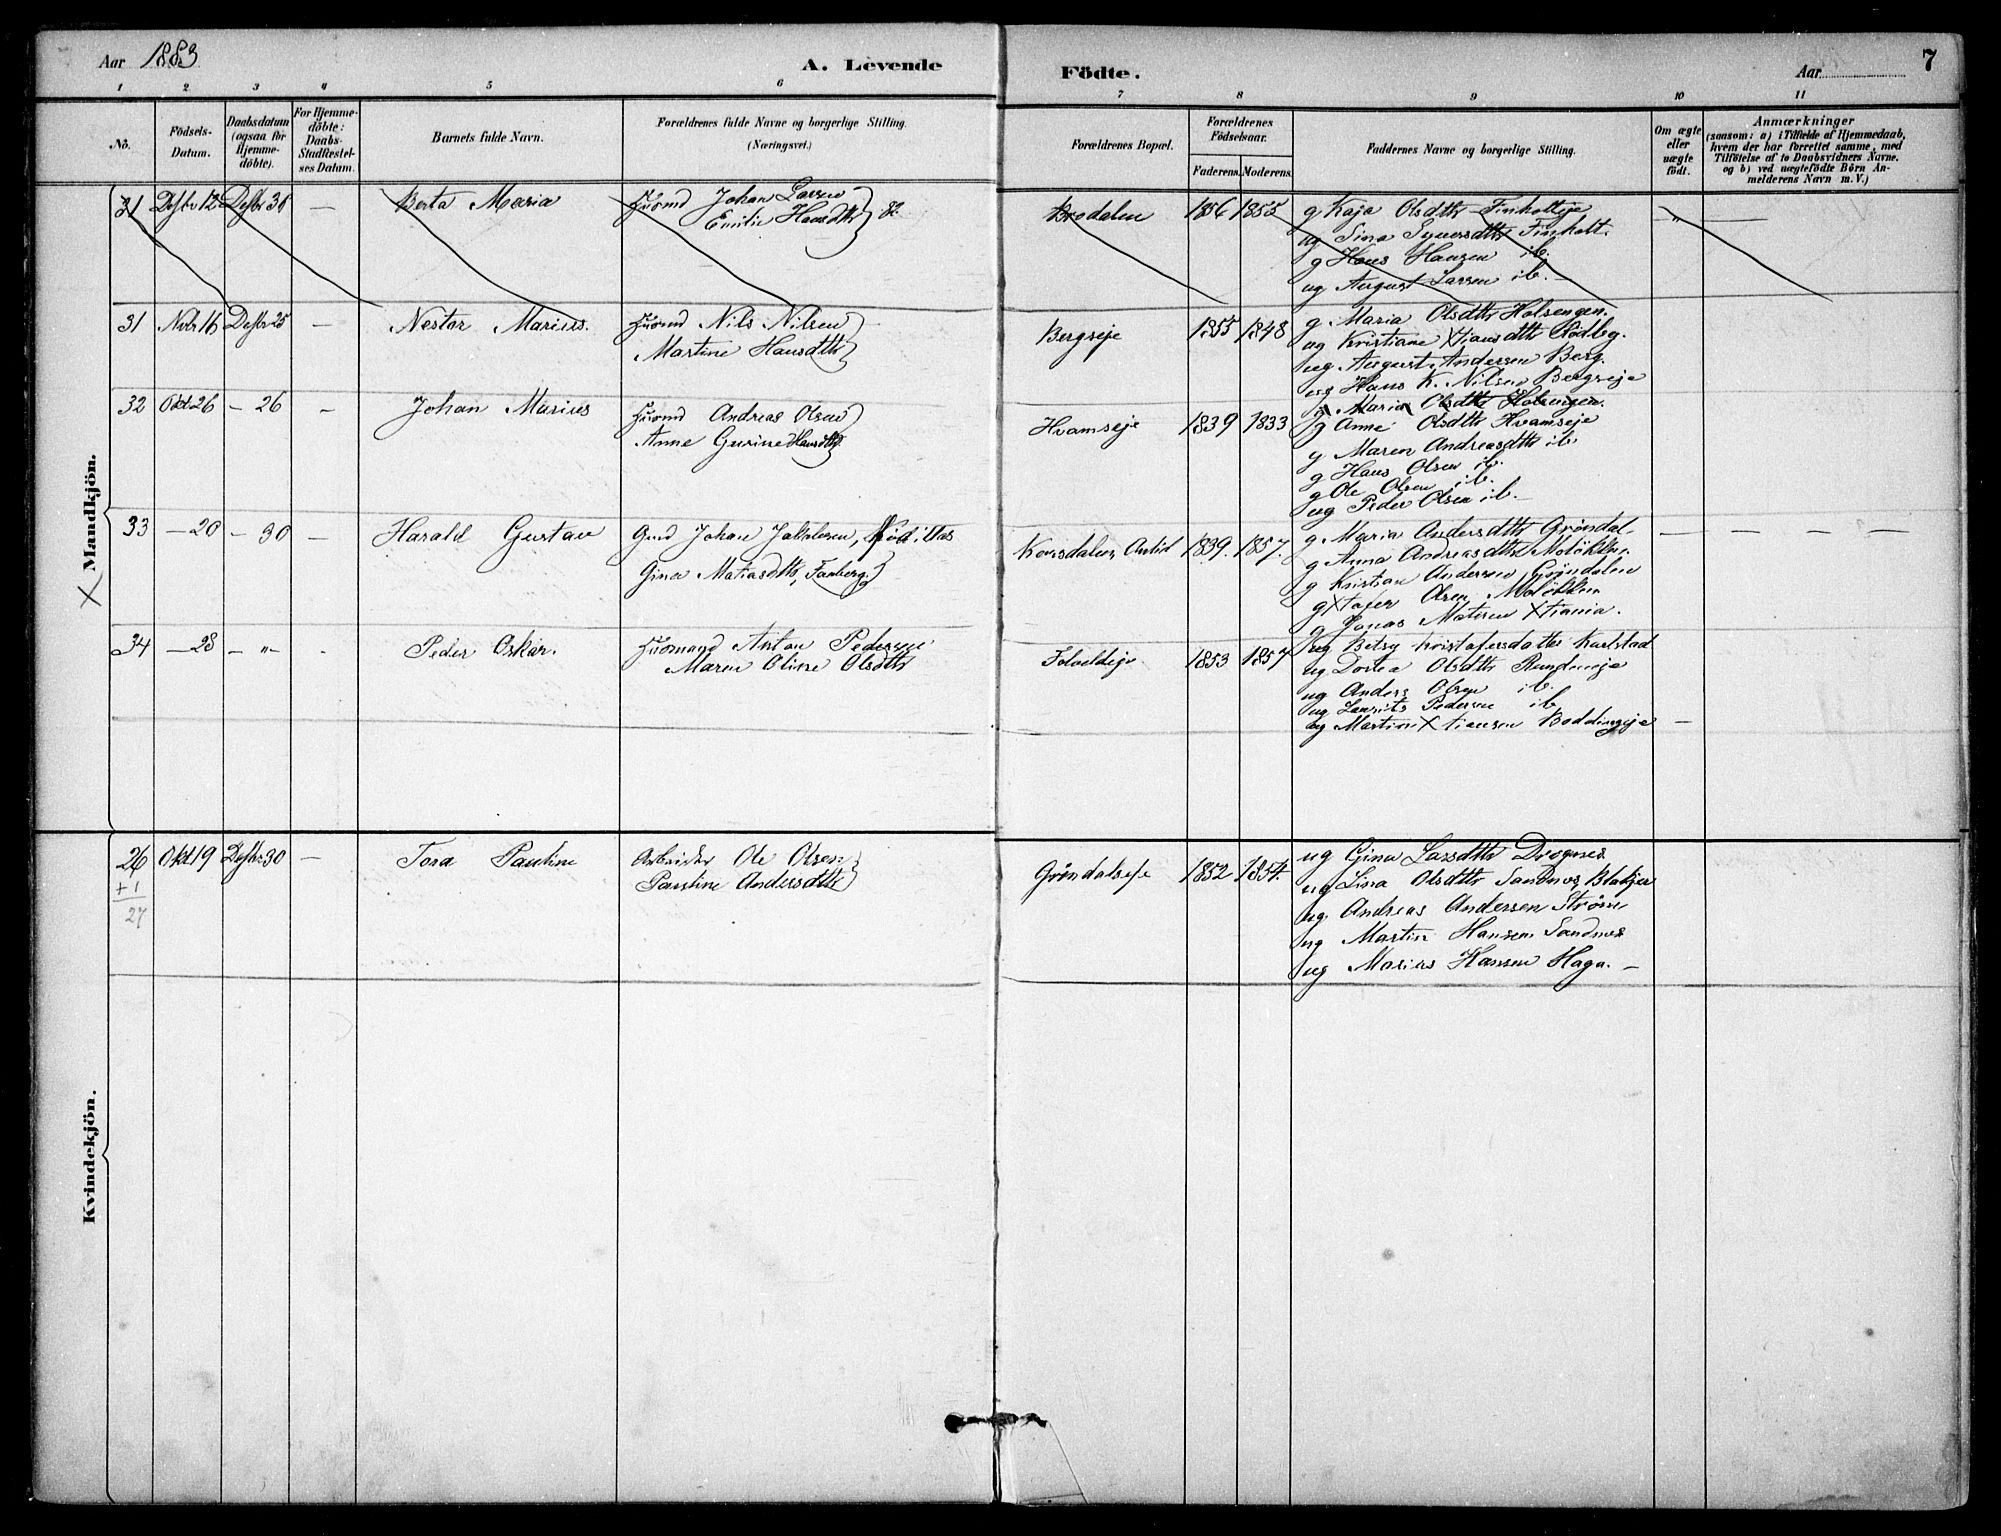 Aar 1883 A. Levende Födte. Aar 7
1 2 3 4 5 6 7 8 9 10 11
No.
Födsels-Datum.
Daabsdatum (ogsaa for Hjemmedöbte).
For Hjemmedöbte: Daabs-Stadfestelses Datum.
Barnets fulde Navn.
Forældrenes fulde Navne og borgerlige Stilling. (Næringsvei.)
Forældrenes Bopæl.
Forældrenes Födselsaar.
Faderens. Moderens.
Faddernes Navne og borgerlige Stilling.
Om ægte eller uægte födt.
Anmærkninger
(saasom: a) i Tilfælde af Hjemmedaab, hvem der har forrettet samme, med Tilföielse af to Daabsvidners Navne. og b) ved uægtefödte Börn Anmelderens Navn m. V.)
Mandkjön.
31 Desbr 12 Desbr 30 — Berta Maria
Husmd Johan Larsen
Emilie Hansdtr
Brodalen 1856 1855
g Kaja Olsdtr Finholteje
ug Sina Syversdtr Finholt.
g Hans Hansen ib.
ug August Larsen ib. —
31 Nvbr 16 Desbr 25 — Nestor Marius.
Husmd Nils Nilsen
Martine Hansdtr
Bergseje 1855 1848
g Maria Olsdtr Holsengen.
ug Kristiane Xtiansdtr Rödbg.
ug August Andersen Berg.
ug Hans K. Nilsen Bergseje
32 Okt 26 — 26 — Johan Marius
Husmd Andreas Olsen
Anne Gurine Hansdtr
Hvamseje 1839 1833
g Maria Olsdtr Holsengen.
g Anne Olsdtr Hvamseje
g Maren Andreasdtr ib
g Hans Olsen ib.
g Ole Olsen ib.
ug Peder Olsen ib. —
33 — 20 — 30 — Harald Gustav
Gmd Johan Jakobsen,
Gina Matiasdtr,
1839. 1857.
g Maria Andersdtr Gröndal.
g Anna Andreasdtr
g Kristian Andersen Gröndalen
g Xtofer Olsen
g Jonas Matisen Xtiania.
34 — 28 — „ — Peder Oskar.
Husmand Anton Pedersen
Maren Oline Olsdtr
1853 1857
ug Betsy Kristofersdatter Karlstad
ug Dortea Olsdtr Rundeneje
ug Anders Olsen ib.
ug Laurits Pedersen ib
ug Martin Xtiansen Boddingseje —
Kvindekjön.
26 Okt 19 Desbr 30 — Tora Pauline
+1
27
Arbeider Ole Olsen
Pauline Andersdtr
Gröndalseje 1852 1854.
ug Gina Larsdtr Drognes
ug Lina Olsdtr Sandnes, Blakjer
ug Andreas Andersen Ström
ug Martin Hansen Sandnes
ug Marius Hansen Haga. —